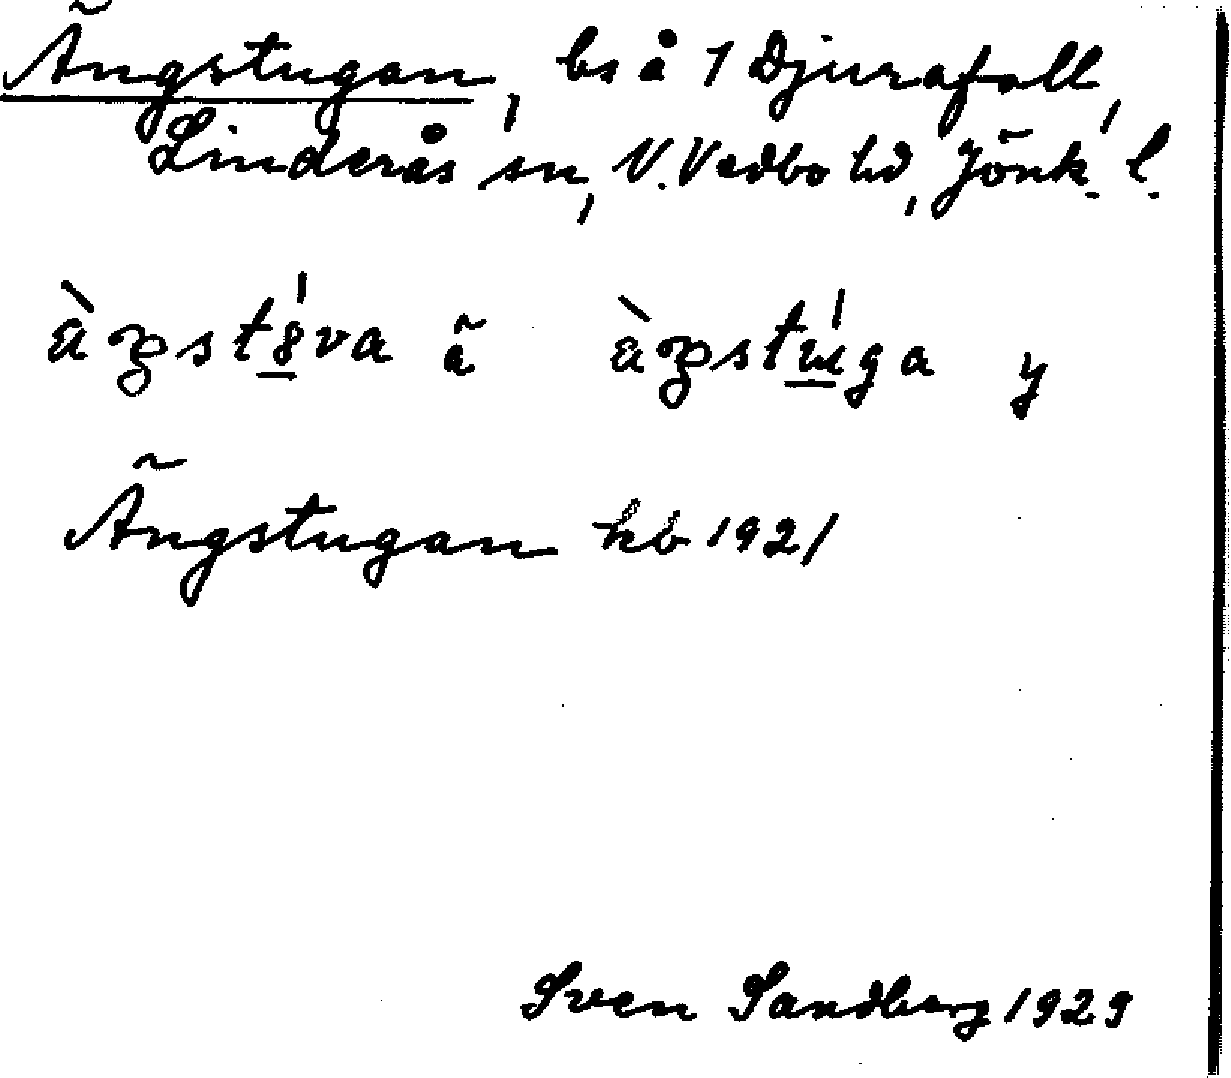 Ängstugan, bs å 1 Djurafall,
Linderås sn, N. Vedbo hd, Jönk. l.
ä y
Ängstugan kb 1921
Sven Sandberg 1929